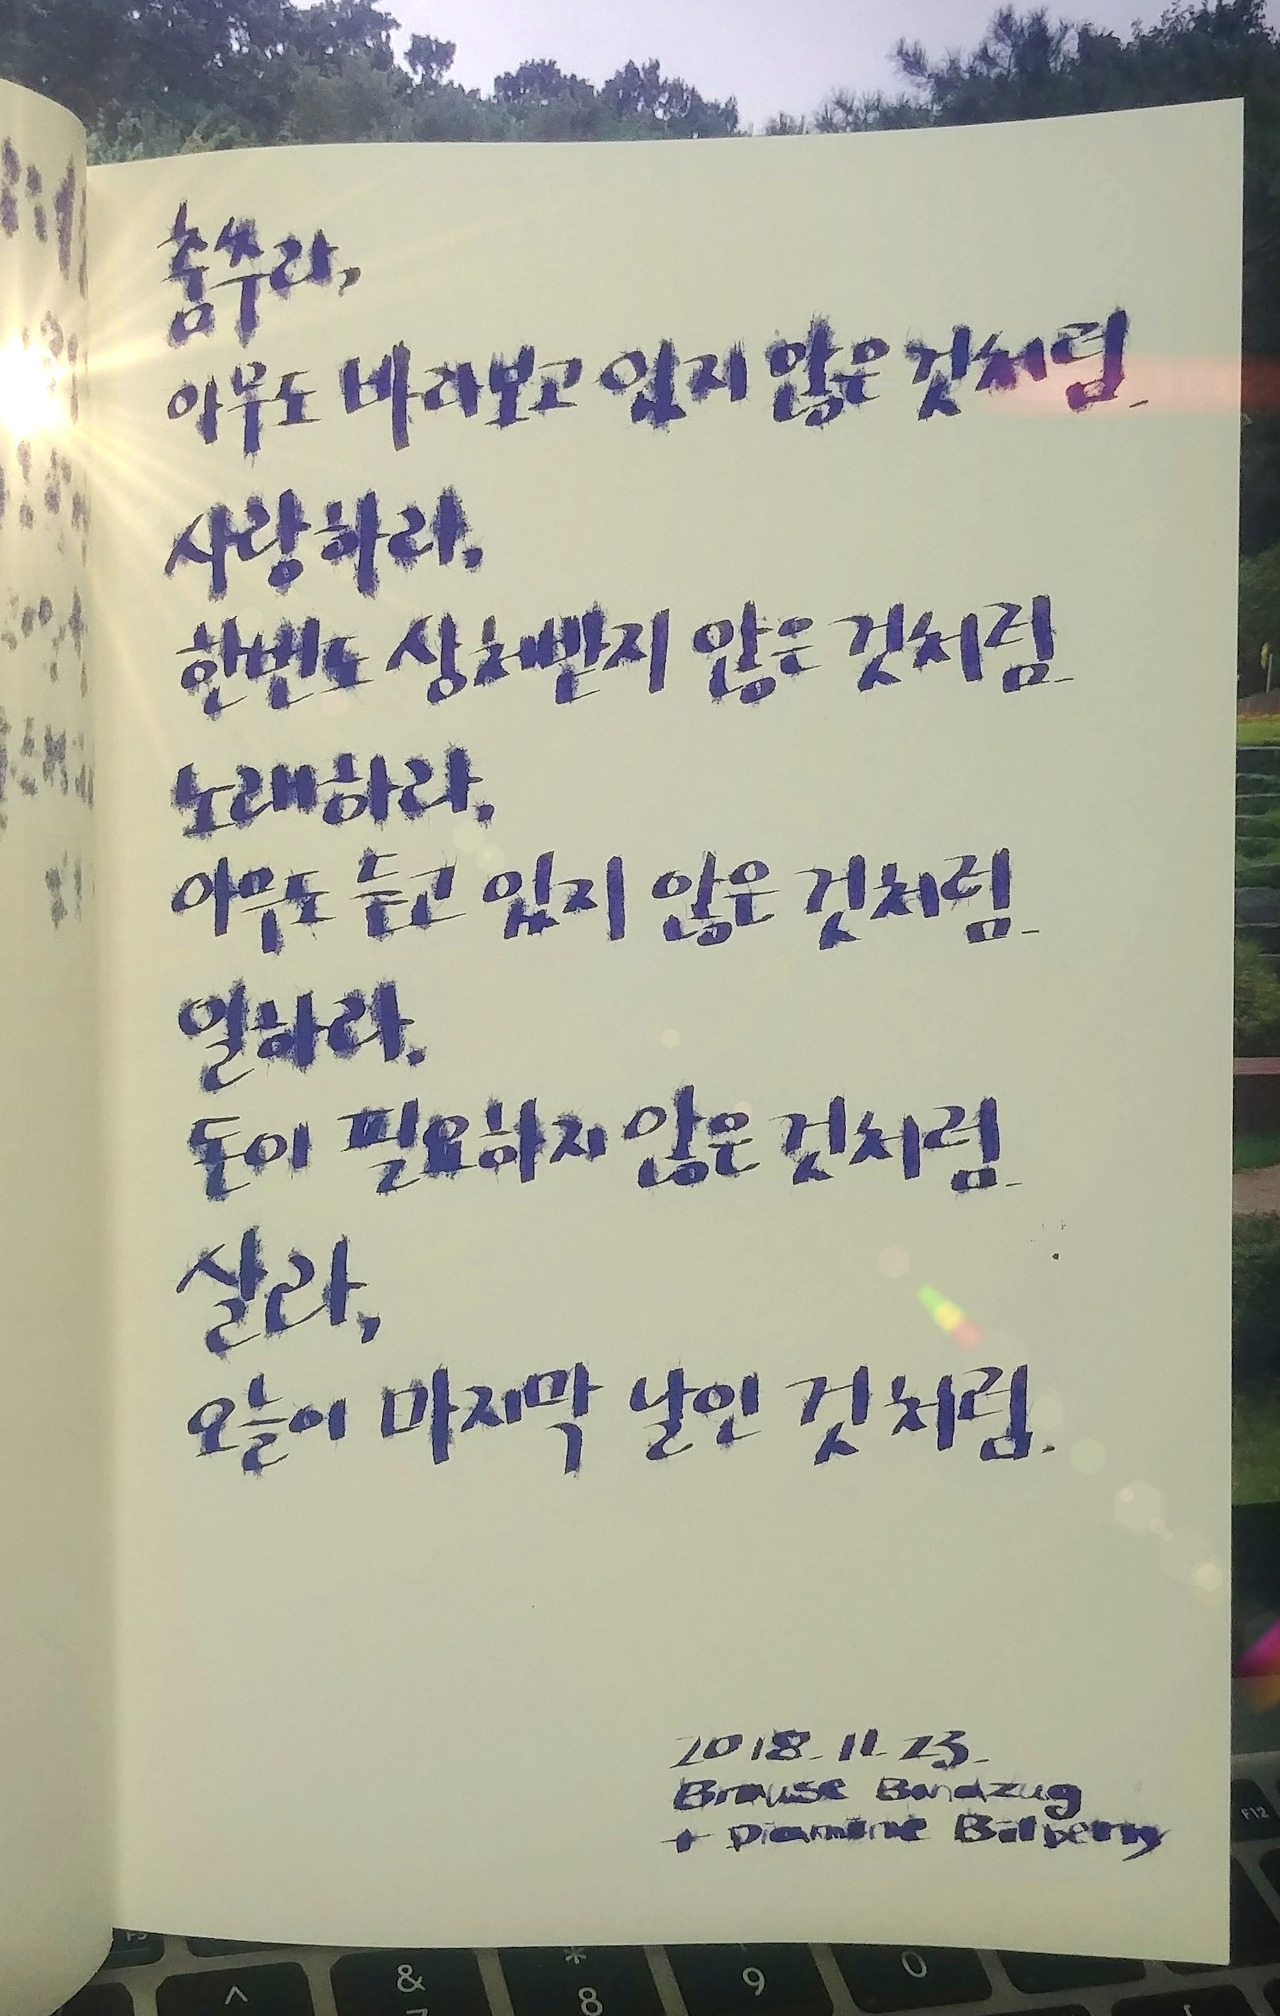 춤추라,
아무도 바라보고 있지 않은 것처럼.
사랑하라,
한번도 상처받지 않은 것처럼.
노래하라,
아무도 듣고 있지 않은 것처럼.
일하라.
돈이 필요하지 않은 것처럼.
살라,
오늘이 마지막 날인 것처럼.
2018. 11. 23.
Brause Bandzug
+ Diamine Bilberry
F12
^
&
*
8
9
0